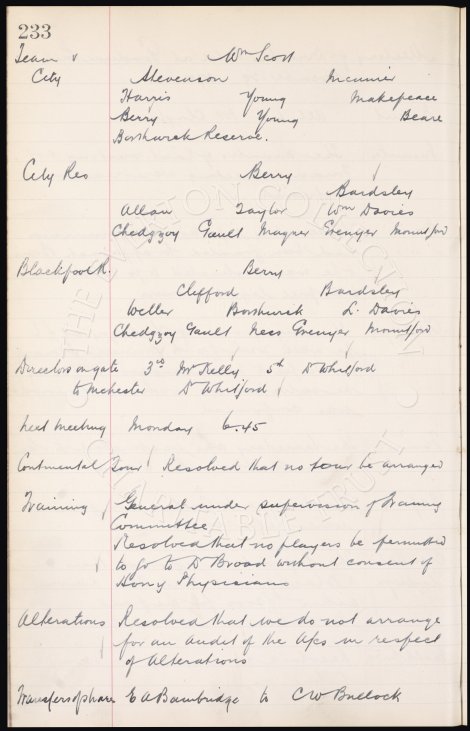 233
Team v Wm Scott
City Stevenson Mcconnier
Harris Young Makepeace
Berry Young Beare
Borthwick Reserve.
City Res Berry
Bardsley
Allan Taylor Wm Davies
Chedgzoy Gault Magner Grenyer Mountford
Blackpool R. Berry
Clifford Bardsley
Weller Borthwick L. Davies
Chedgzoy Gault Ness Grenyer Mountford
Directors on gate 3rd Mr Kelly 5th Dr Whitford
to Mchester Dr Whitford
next meeting Monday 6.45
Continental Tour Resolved that no tour be arranged
Training General under supervision of Training
Committee
Resolved that no players be permitted
to go to Dr Broad without consent of
Hony Physicians
Alterations Resolved that we do not arrange
for an audit of the A/cs in respect
of Alterations
Transfers of shares E A Bainbridge to C W Bullock
THE EVERTON COLLECTION
CHARITABLE TRUST